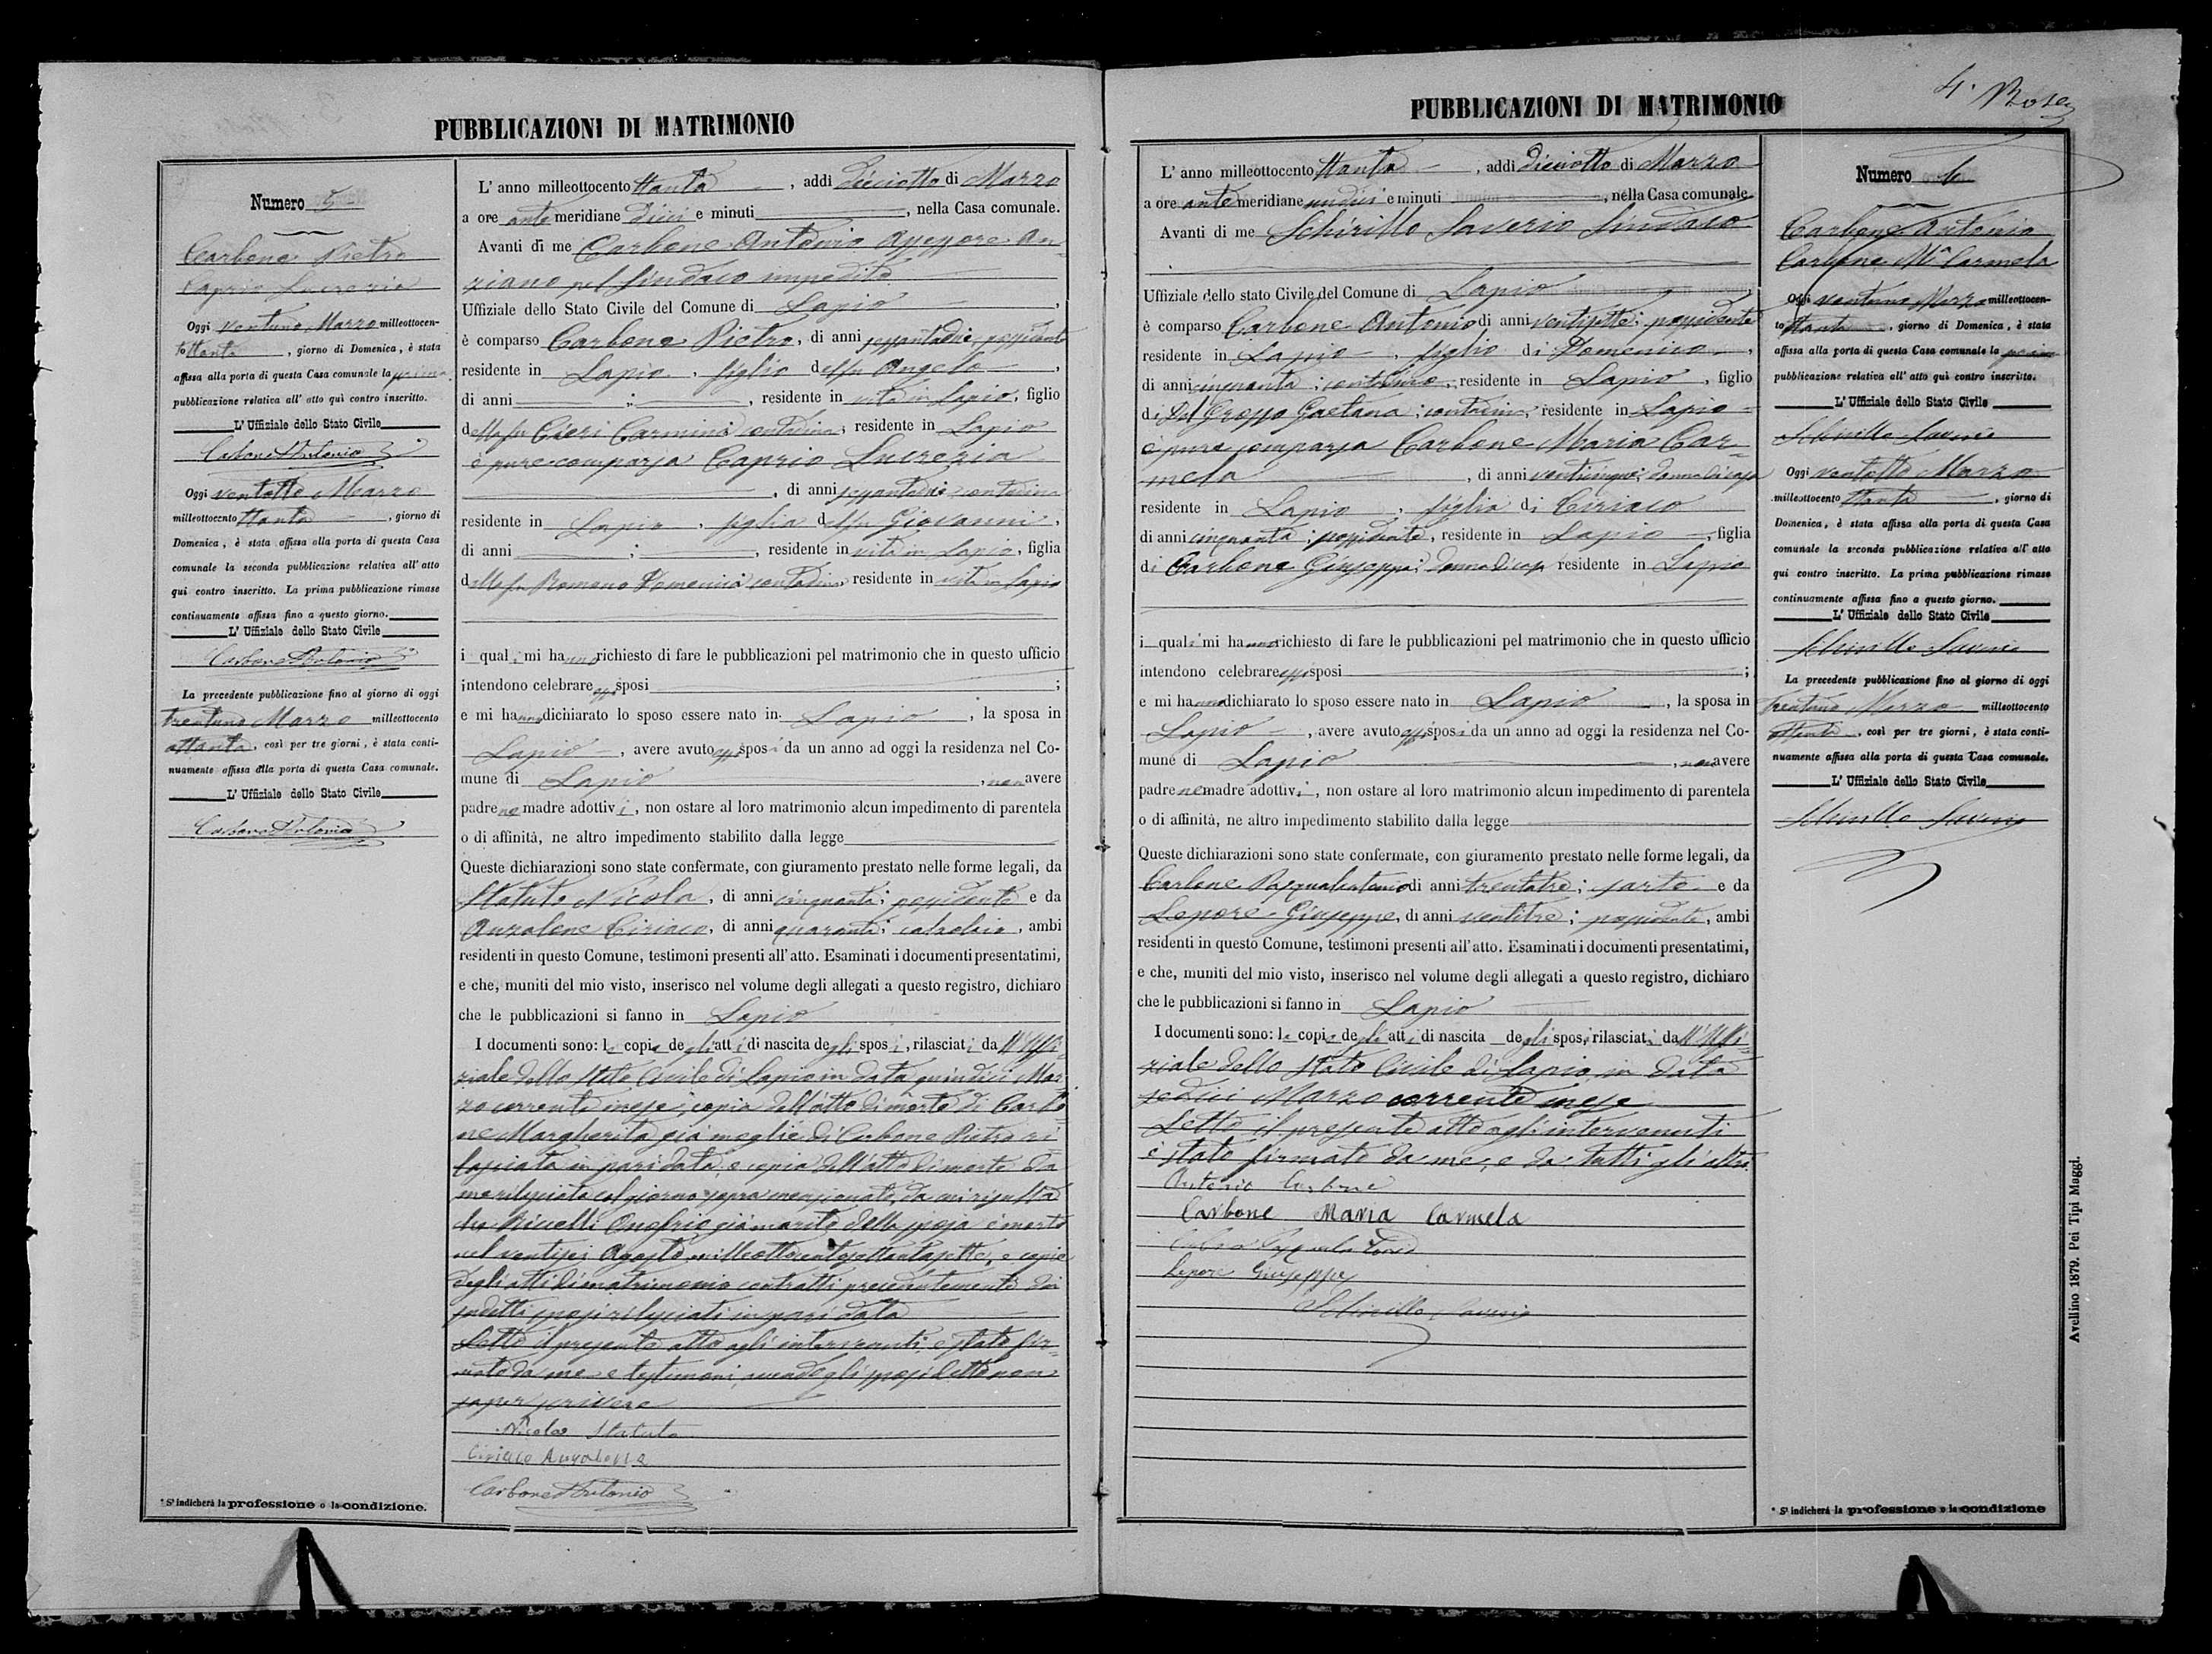 PUBBLICAZIONI DI MATRIMONIO
Numero 5
Carbone Pietro
Caprio Lucrezia
Oggi ventuno Marzo milleottocen-
tottanta, giorno di Domenica, è stata
affissa alla porta di questa Casa comunale la prima
pubblicazione relativa all' atto quì contro inscritto.
L' Uffiziale dello Stato Civile
Carbone Antonio
Oggi ventotto Marzo
milleottocento ttanta, giorno di
Domenica, è stata affissa alla porta di questa Casa
comunale la seconda pubblicazione relativa all' atto
qui contro inscritto. La prima pubblicazione rimase
continuamente affissa fino a questo giorno.
L' Uffiziale dello Stato Civile
Carbone Antonio
La precedente pubblicazione fino al giorno di oggi
trentuno Marzo milleottocento
ottanta, così per tre giorni, è stata conti-
nuamente affissa alla porta di questa Casa comunale.
L' Uffiziale dello Stato Civile
Carbone Antonio
* Si indicherà la professione o la condizione.
L' anno milleottocento ttanta, addì dieciotto di Marzo
a ore ante meridiane dieci e minuti, nella Casa comunale.
Avanti di me Carbone Antonio Assessore An-
ziano pel Sindaco impedito
Uffiziale dello Stato Civile del Comune di Lapio,
è comparso Carbone Pietro, di anni sessantadue, possidente
residente in Lapio, figlio del fu Angelo,
di anni ; , residente in vita in Lapio, figlio
della fu Cieri Carmina contadina; residente in Lapio
è pure comparsa Caprio Lucrezia
, di anni contadina
residente in Lapio, figlia del fu Giovanni,
di anni ; , residente in vita in Lapio, figlia
della fu Romano Domenica contadina residente in vita in Lapio
i quali mi hanno richiesto di fare le pubblicazioni pel matrimonio che in questo ufficio
intendono celebrare essi sposi ;
e mi hanno dichiarato lo sposo essere nato in Lapio, la sposa in
Lapio, avere avuto essi sposi da un anno ad oggi la residenza nel Co-
mune di Lapio, non avere
padre ne madre adottivi, non ostare al loro matrimonio alcun impedimento di parentela
o di affinità, ne altro impedimento stabilito dalla legge
Queste dichiarazioni sono state confermate, con giuramento prestato nelle forme legali, da
Statuto Nicola, di anni cinquanta; possidente e da
Auzalone Ciriaco, di anni quaranta; calzolaio, ambi
residenti in questo Comune, testimoni presenti all' atto. Esaminati i documenti presentatimi,
e che, muniti del mio visto, inserisco nel volume degli allegati a questo registro, dichiaro
che le pubblicazioni si fanno in Lapio
I documenti sono: le copie degli atti di nascita degli sposi, rilasciati dall'Uffi-
ziale dello Stato Civile di Lapio in data quindici Mar-
zo corrente mese; copia dell'atto di morte di Carbo
ne Margherita già moglie di Carbone Pietro ri
lasciata in pari data, e copia dell'atto di morte da
me rilasciato col giorno sopra menzionato, da cui risulta
che Onofrio già marito della sposa è morto
nel ventisei Agosto milleottocentosettantasette, e copie
degli atti di matrimonio contratti precedentemente dai
sudetti sposi rilasciati in pari data
Letto il presente atto agli intervenuti è stato fir-
mato da me e testimoni, avendo gli sposi detto non
saper scrivere
Nicola Statuto
Ciriaco Auzalone
Carbone Antonio
PUBBLICAZIONI DI MATRIMONIO
4.
L' anno milleottocento ttanta, addì dieciotto di Marzo
a ore ante meridiane undici e minuti, nella Casa comunale
Avanti di me Schirillo Saverio Sindaco
Uffiziale dello stato Civile del Comune di Lapio,
è comparso Carbone Antonio di anni ventisette; possidente
residente in Lapio, figlio di Domenico,
di anni cinquanta; contadino, residente in Lapio, figlio
di Del Grosso Gaetana; contadina, residente in Lapio
è pure comparsa Carbone Maria Car-
mela, di anni venticinque; donna di casa
residente in Lapio, figlia di Ciriaco
di anni cinquanta; possidente, residente in Lapio, figlia
di Carbone Giuseppa; donna di casa residente in Lapio
i quali mi hanno richiesto di fare le pubblicazioni pel matrimonio che in questo ufficio
intendono celebrare essi sposi ;
e mi hanno dichiarato lo sposo essere nato in Lapio, la sposa in
Lapio, avere avuto essi sposi da un anno ad oggi la residenza nel Co-
mune di Lapio, non avere
padre ne madre adottivi, non ostare al loro matrimonio alcun impedimento di parentela
o di affinità, ne altro impedimento stabilito dalla legge
Queste dichiarazioni sono state confermate, con giuramento prestato nelle forme legali, da
Carbone Pasqualantonio di anni trentatre; sarto e da
Lepore Giuseppe, di anni ventitre; possidente, ambi
residenti in questo Comune, testimoni presenti all' atto. Esaminati i documenti presentatimi,
e che, muniti del mio visto, inserisco nel volume degli allegati a questo registro, dichiaro
che le pubblicazioni si fanno in Lapio
I documenti sono: le copie degli atti di nascita degli sposi, rilasciati dall'Uffi-
ziale dello Stato Civile di Lapio in data
sedici Marzo corrente mese
Letto il presente atto agli intervenuti
è stato firmato da me, e da tutti gli altri
Antonio Carbone
Carbone Maria Carmela
Carbone Pasqualantonio
Lepore Giuseppe
Schirillo Saverio
Numero 6
Carbone Antonio
Carbone Ma Carmela
Oggi ventuno Marzo milleottocen-
tottanta, giorno di Domenica, è stata
affissa alla porta di questa Casa comunale la prima
pubblicazione relativa all' atto quì contro inscritto.
L' Uffiziale dello Stato Civile
Schirillo Saverio
Oggi ventotto Marzo
milleottocento ttanta, giorno di
Domenica, è stata affissa alla porta di questa Casa
comunale la seconda pubblicazione relativa all' atto
qui contro inscritto. La prima pubblicazione rimase
continuamente affissa fino a questo giorno.
L' Uffiziale dello Stato Civile
Schirillo Saverio
La precedente pubblicazione fino al giorno di oggi
trentuno Marzo milleottocento
ottanta, così per tre giorni, è stata conti-
nuamente affissa alla porta di questa Casa comunale.
L' Uffiziale dello Stato Civile
Schirillo Saverio
* Si indicherà la professione o la condizione
Avellino 1879. Pei Tipi Maggi.